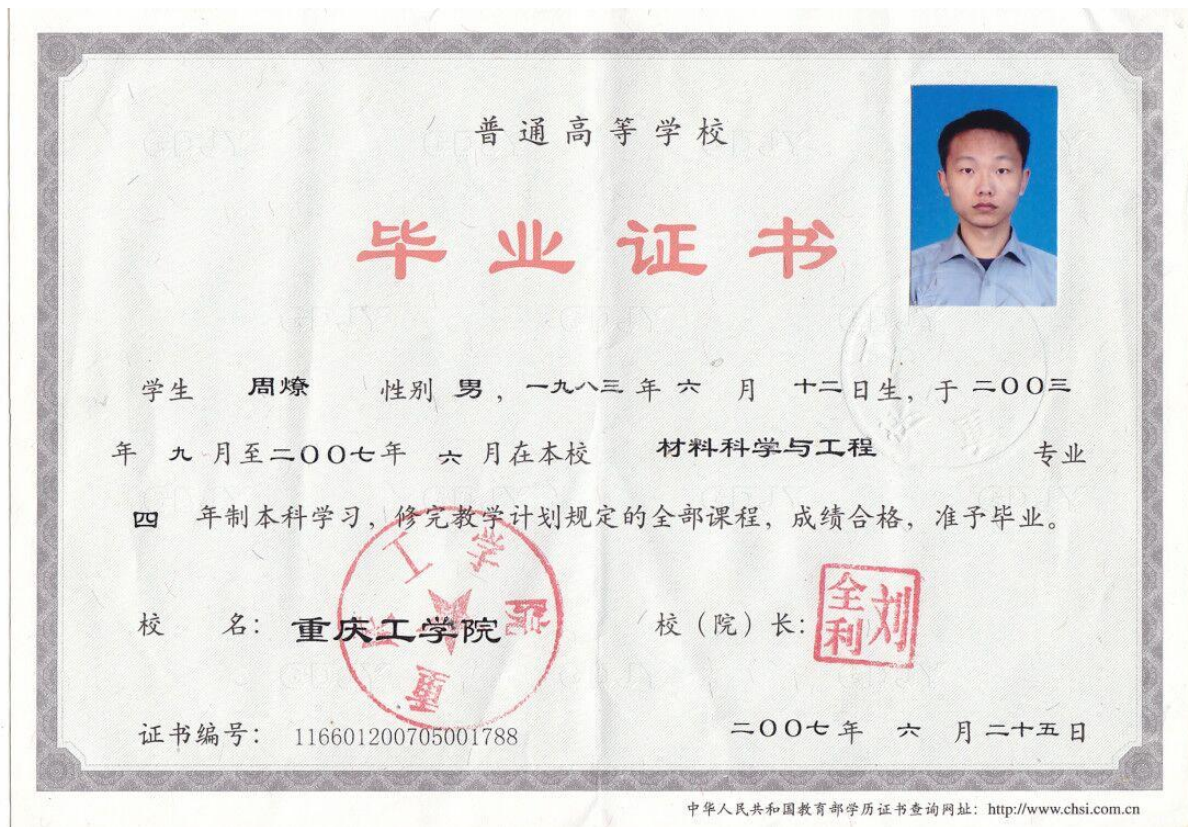 普通高等学校
毕业证书
学生 周燎 性别 男，一九八三年 六 月 十二日生，于 二〇〇三
年 九 月至二〇〇七年 六 月在本校 材料科学与工程 专业
四 年制本科学习，修完教学计划规定的全部课程，成绩合格，准予毕业。
校 名：重庆工学院 校（院）长：刘全利
重庆工学院
证书编号：116601200705001788 二〇〇七年 六 月二十五日
中华人民共和国教育部学历证书查询网址：http://www.chsi.com.cn